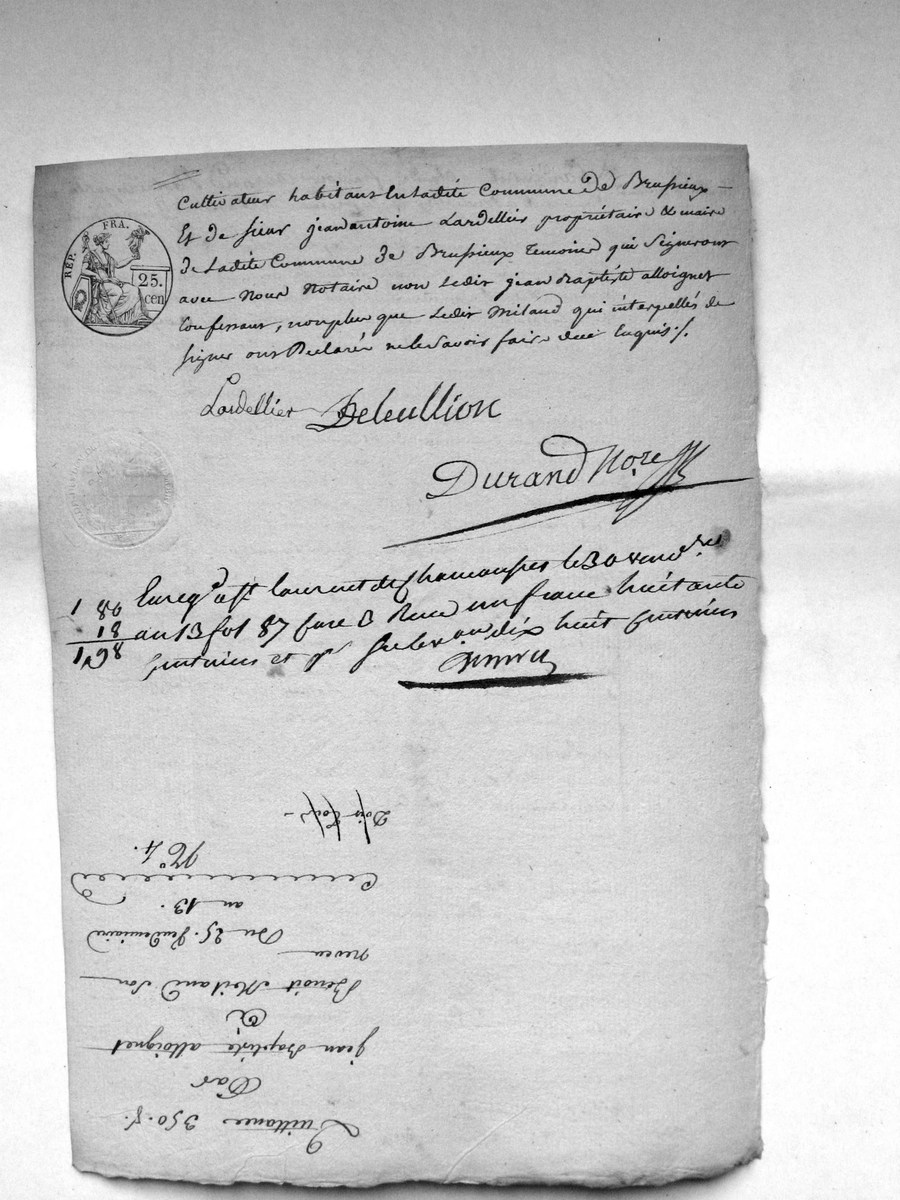 Cultivateur habitans en ladite Commune de Brussieux
Et de sieur jean antoine Lardellier propriétaire & maire
de Ladite Commune de Brussieux temoins qui signeront
avec Nous Notaire non Ledit jean Baptiste alloignet
Confessant, nonplus que Ledit Milaud qui interpellés de
signer ont Declarés ne le savoir faire duë Enquis ./.
RÉP. FRA.
25.
cen
Lardellier Deleullion
Durand Nore
Enregd a St laurent de Chamousset le 30 vendre
1 80 an 13 fol 87 case 3 Recu un franc huitante
18 Centimes et pr Subvon dix huit Centimes
1,98
Quittance 350. f.
Par
jean Baptiste alloignet
à
Benoît Milaud son
neveu
Du 25. Vendemiaire
an 13.
No 4.